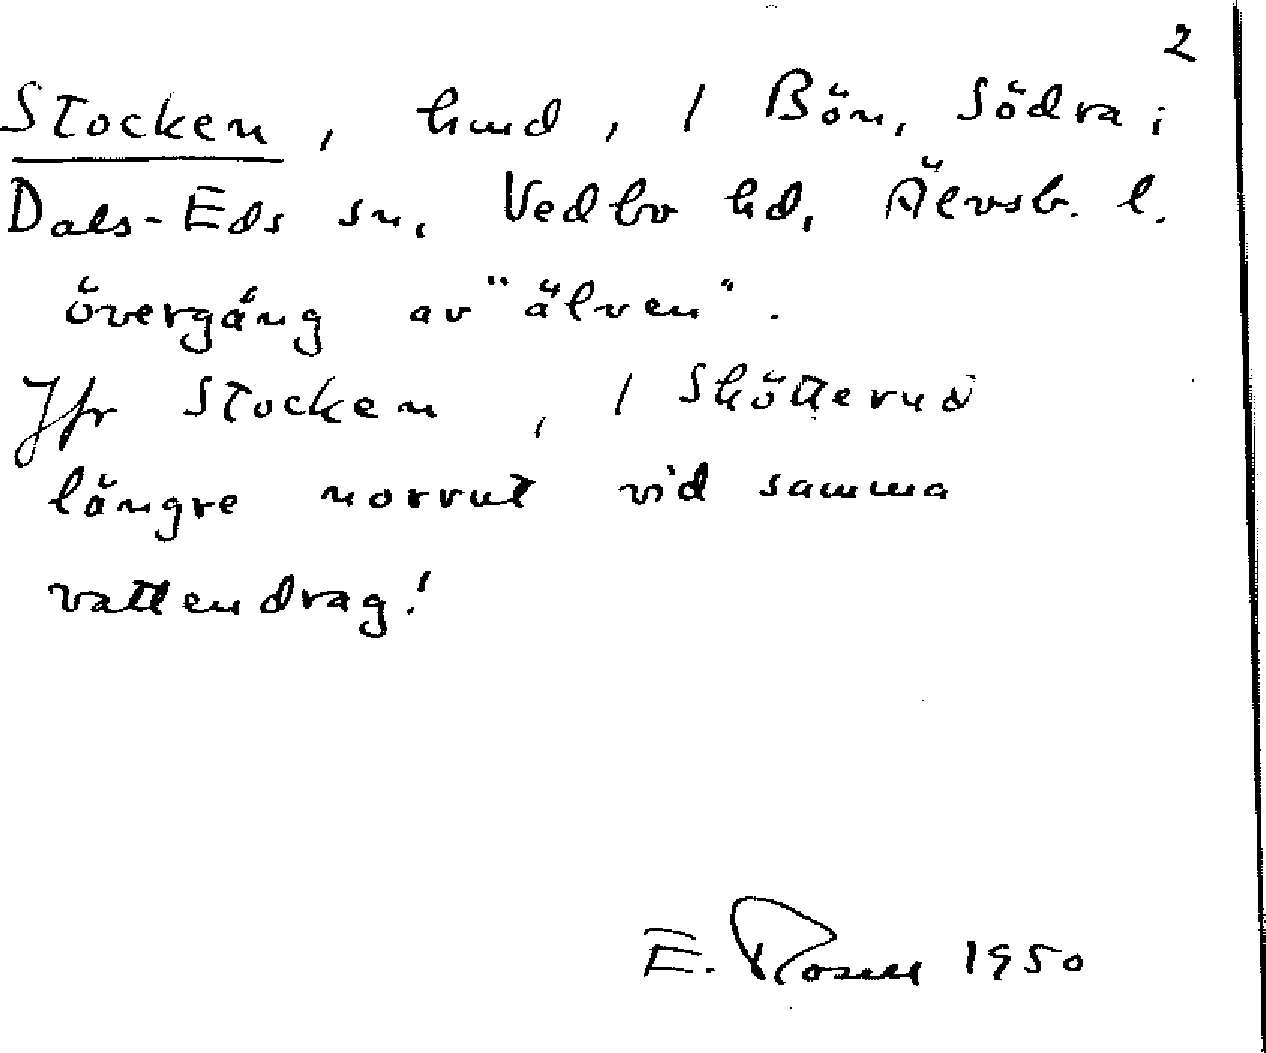 2
Stocken, hmd, / Bön, Södra;
Dals-Eds sn, Vedbo hd, Älvsb. l.
övergång av "älven".
Jfr Stocken, / Skötterud
längre norrut vid samma
vattendrag!
E. Rosell 1950